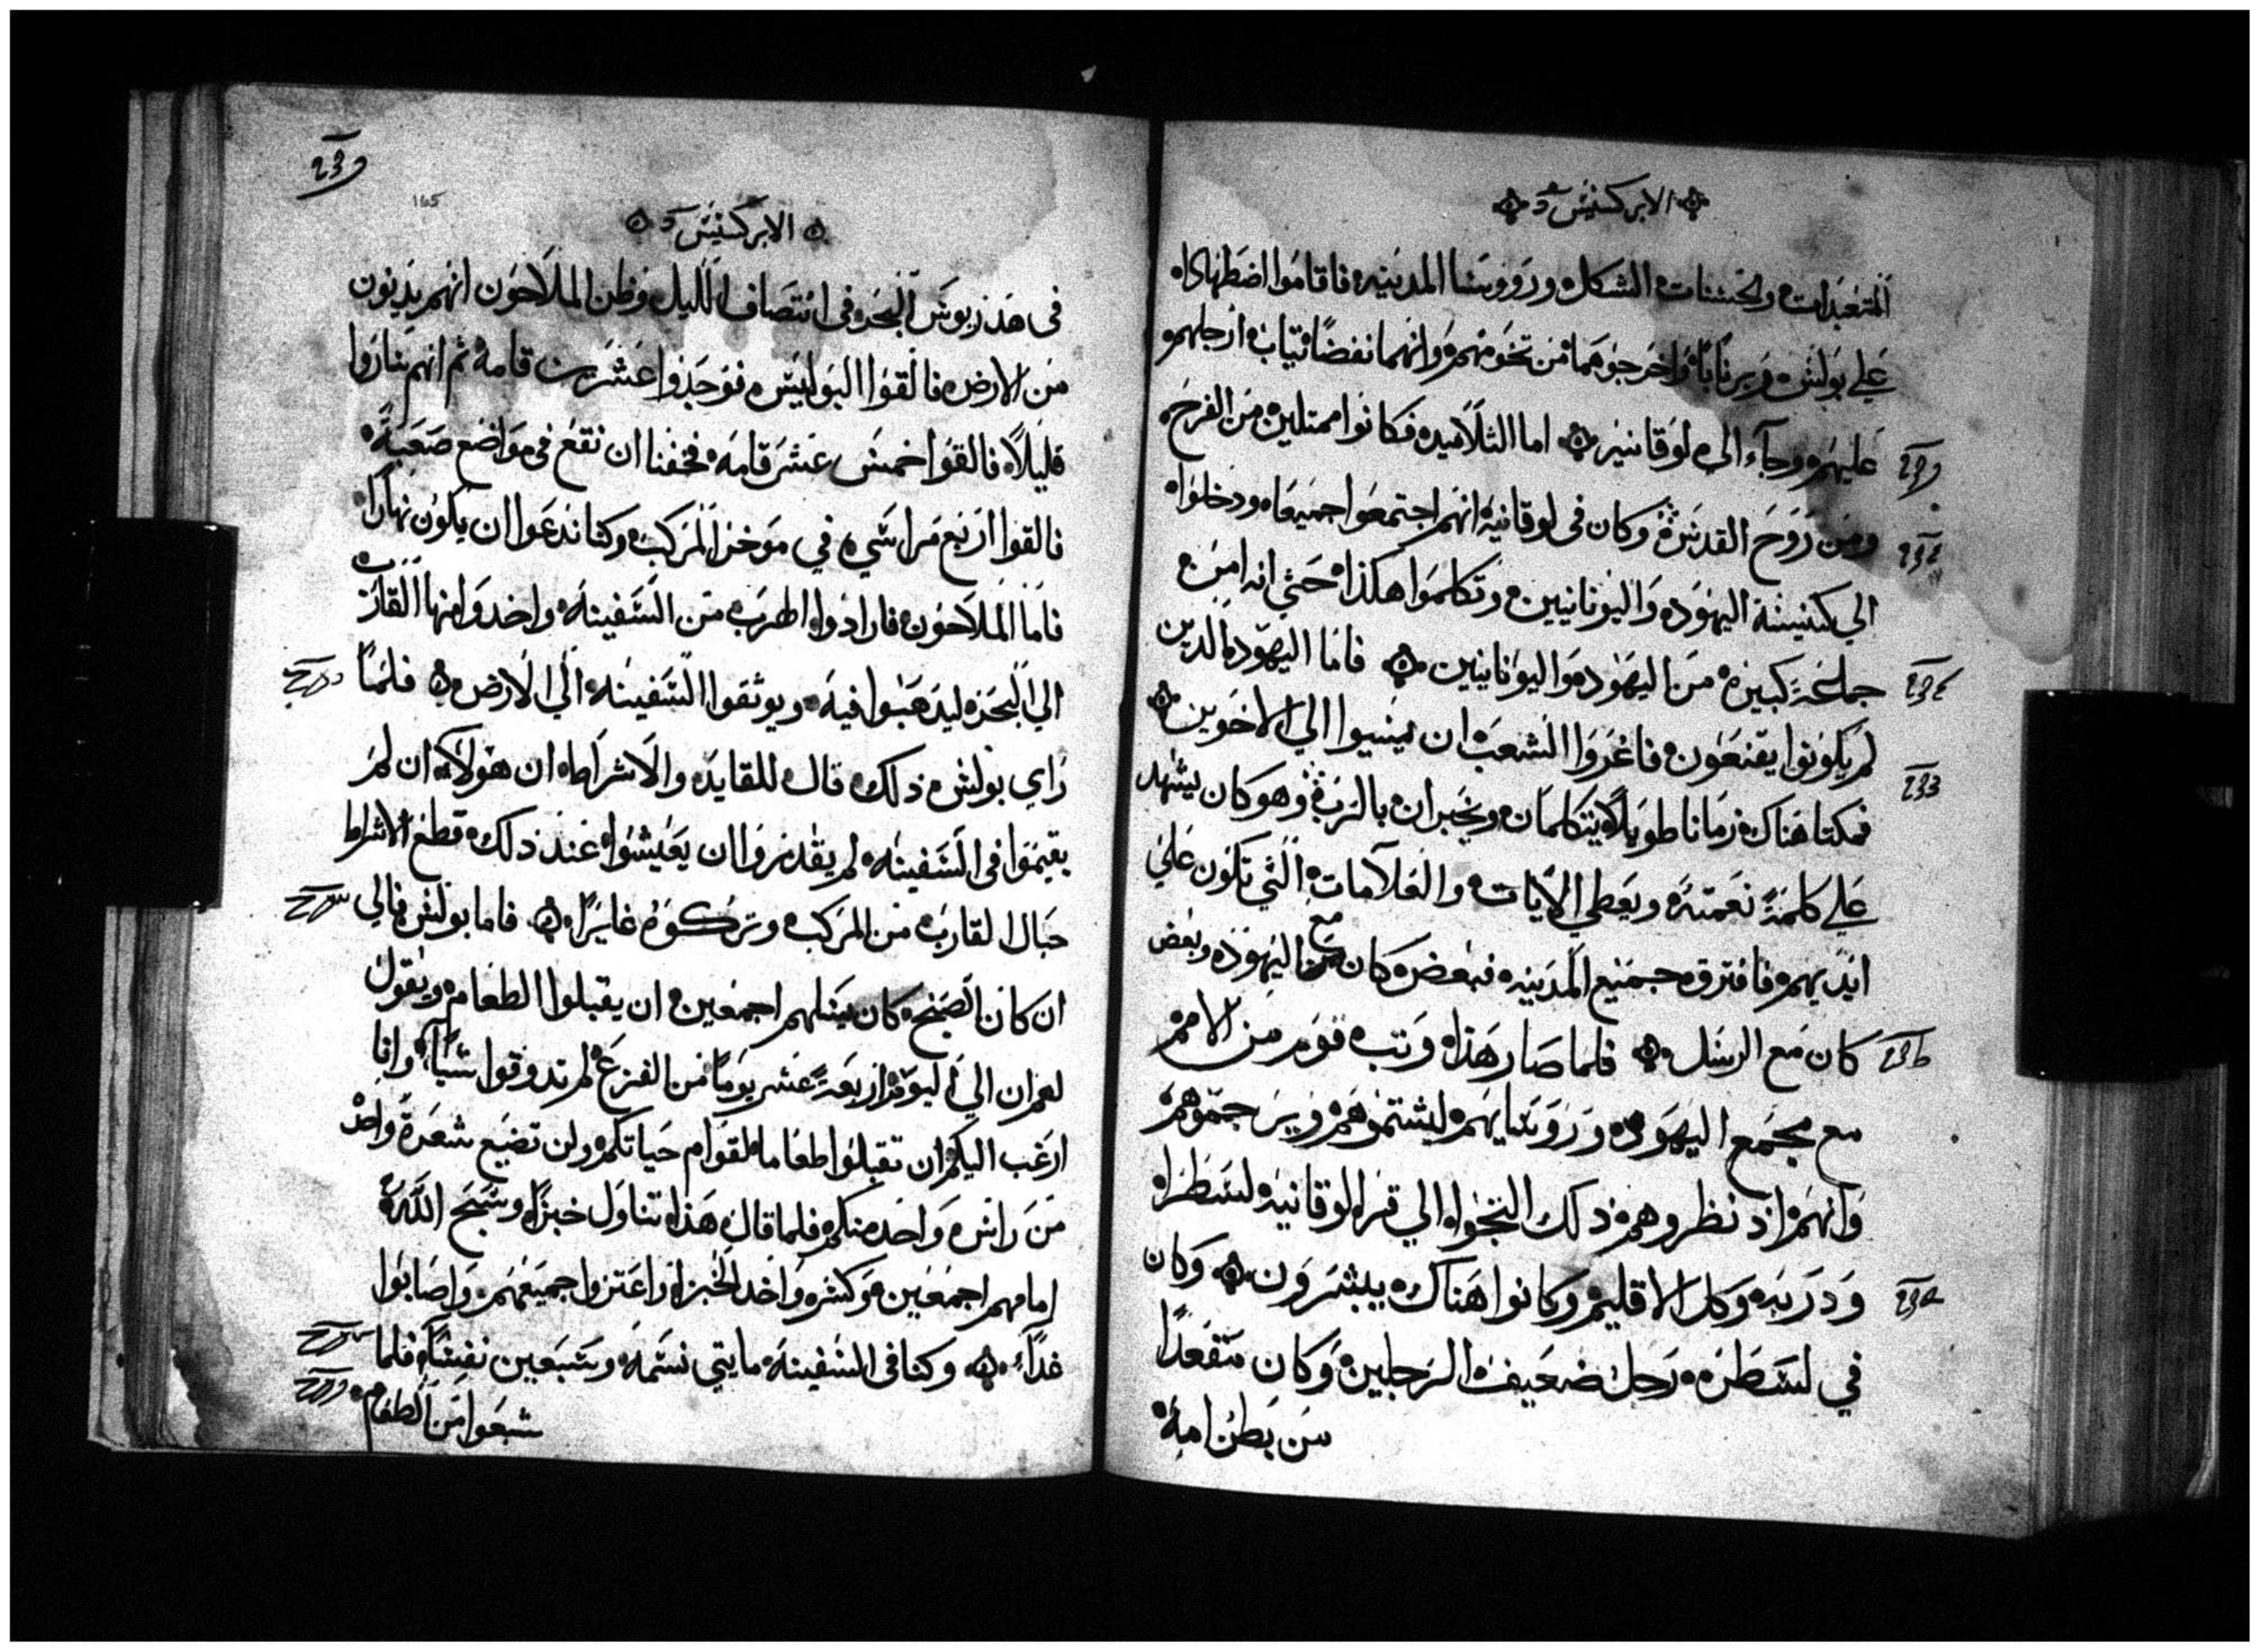 الابركسيس
المتعبدات والحسنات الشكل ورووسا المدينه فاقاموا اضطهادا
علي بولس وبرنابا واخرجوهما من تخومهم وانهما نفضا تياب ارجلهم
عليهم وجاء الي لوقانيه اما التلاميد فكانوا ممتلين من الفرح
ومن روح القدس وكان في لوقانية انهم اجتمعوا جميعا ودخلوا
الي كنيسة اليهود واليونانيين وتكلموا هكذا حتي انه امن
جماعة كبيره من اليهود واليونانيين فاما اليهود الدين
لم يكونوا يقنعون فاغروا الشعب ان يسيوا الي الاخوين
فمكتا هناك زمانا طويلا يتكلمان ويخبران بالرب وهو كان يشهد
علي كلمة نعمته ويعطي الايات والعلامات التي تكون علي
ايديهم فافترق جميع المدينه فبعض كان مع اليهود وبعض
كان مع الرسل فلما صار هذا وتب قوم من الامم
مع مجمع اليهود ورووسايهم ليشتموهم ويرجموهم
وانهم اذ نظروهم ذلك التجوا الي قرا لوقانيه لسطرا
ودربه وكل الاقليم وكانوا هناك يبشرون وكان
في لسطره رجل ضعيف الرجلين وكان متقعدا
من بطن امه
165
الابركسيس
في هدريوس البحر في انتصاف الليل وظن الملاحون انهم يدنون
من الارض فالقوا البوليس فوجدوا عشرين قامه ثم انهم ساروا
قليلا فالقوا خمس عشر قامه فخفنا ان نقع في مواضع صعبة
فالقوا اربع مراسي في موخر المركب وكنا ندعوا ان يكون نهارا
فاما الملاحون فارادوا الهرب من السفينه واخدوا منها القارب
الي البحر ليدهبوا فيه ويوثقوا السفينه الي الارض فلما
راي بولس ذلك قال للقايد والاشراط ان هولاء ان لم
يقيموا في السفينه لم يقدروا ان يعيشوا عند ذلك قطع الاشراط
حبال القارب من المركب وتركوه غايرا فاما بولس فالي
ان كان الصبح كان يسلهم اجمعين ان يقبلوا الطعام ويقول
لهم ان الي اليوم اربعة عشر يوما من الفزع لم تدوقوا شيا وانا
ارغب اليكم ان تقبلوا طعاما لقوام حياتكم ولن تضيع شعرة واحد
من راس واحد منكم فلما قال هذا تناول خبزا وسبح الله
امامهم اجمعين وكسر واخد الخبز واعتزوا جميعهم واصابوا
غداء وكنا في السفينه مايتي نسمه وسبعين نفسا فلما
شبعوا من الطعام